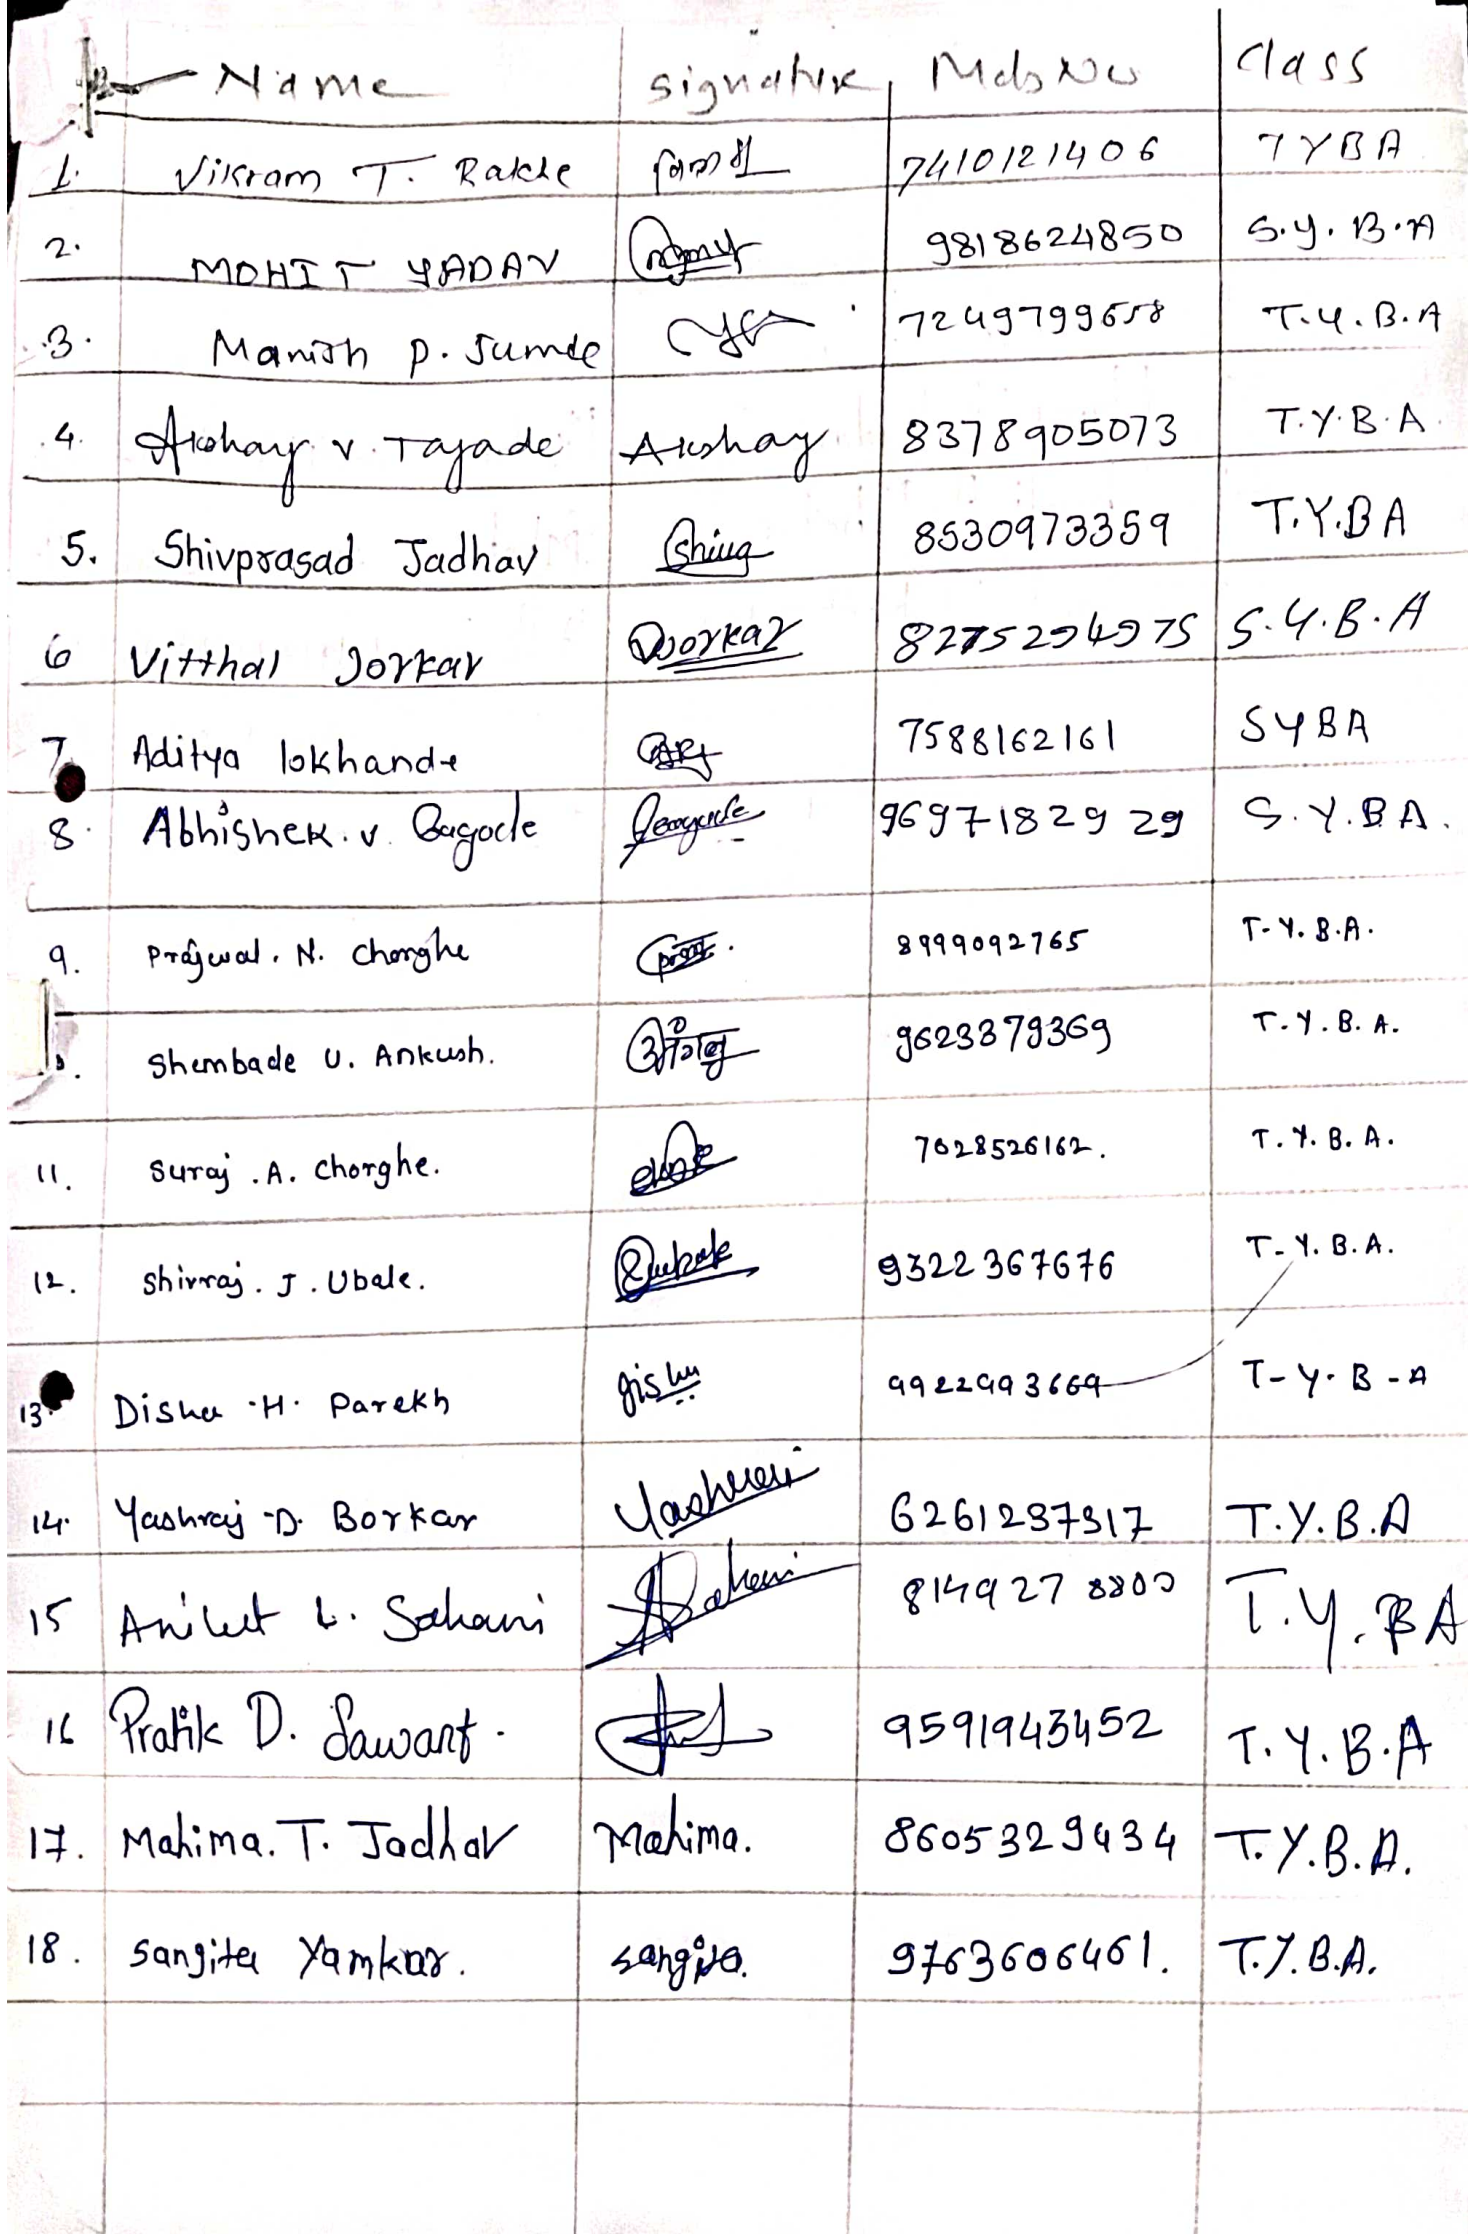 Name signature Mob No Class
1. Vikram T. Rakhe 7410121406 TYBA
2. MOHIT YADAV 9818624850 S.Y.B.A
3. Manish P. Jumde 7249799658 T.Y.B.A
4. Akshay V. Tajade Akshay 8378905073 T.Y.B.A.
5. Shivprasad Jadhav 8530973359 T.Y.BA
6 Vitthal Jorkar 8275294975 S.Y.B.A
7. Aditya lokhande 7588162161 SYBA
8. Abhishek. V. Gagode 9697182929 S.Y.B.A.
9. Prajwal. N. Chorghe 8999092765 T.Y.B.A.
Shembade U. Ankush. 9623879369 T.Y.B.A.
11. Suraj .A. Chorghe. 7028526162. T.Y.B.A.
12. Shivraj. J. Ubale. 9322367676 T.Y.B.A.
13. Disha .H. Parekh 9922993669 T-Y-B-A
14. Yashraj D. Borkar Yashraj 6261237317 T.Y.B.A
15 Aniket L. Sahani 8149278800 T.Y.BA
16 Pratik D. Sawant. 9591943452 T.Y.B.A
17. Mahima. T. Jadhav Mahima. 8605329434 T.Y.B.A.
18. Sangita Yamkar. Sangita. 9763606461. T.Y.B.A.